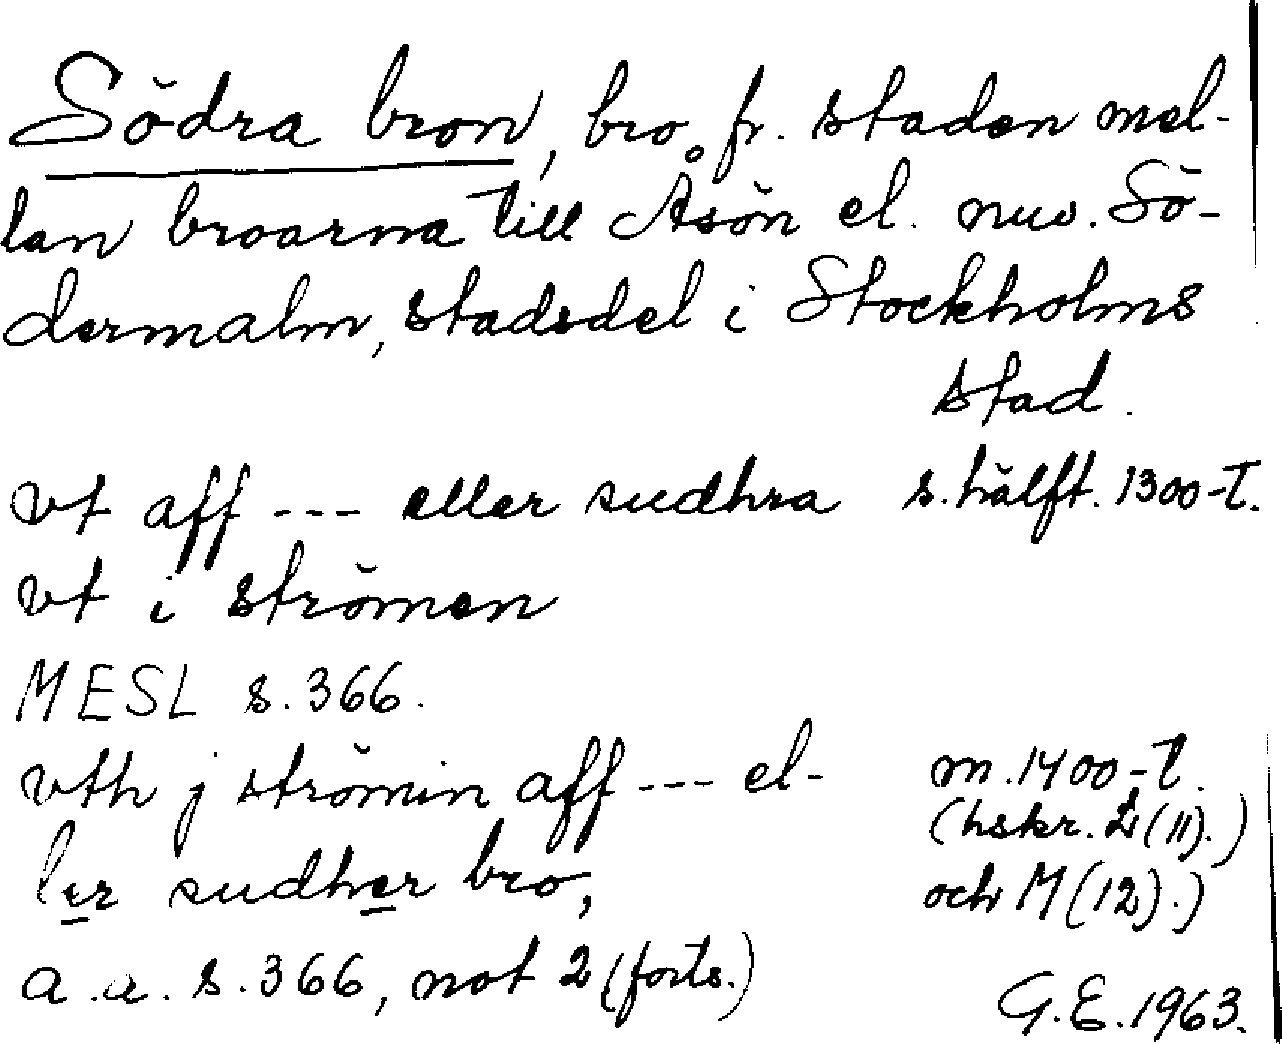 Södra bron, bro fr. staden mel-
lan broarna till Åsön el. nuv. Sö-
dermalm, stadsdel i Stockholms
stad.
vt aff --- eller sudhra s. hälft. 1300-t.
vt i strömen
MESL s. 366.
vth j strömin aff --- el- m. 1400-t.
(hskr. L (11).)
ler sudher bro, och M (12).)
a. a. s. 366, not 2 (forts.)
G.E. 1963.